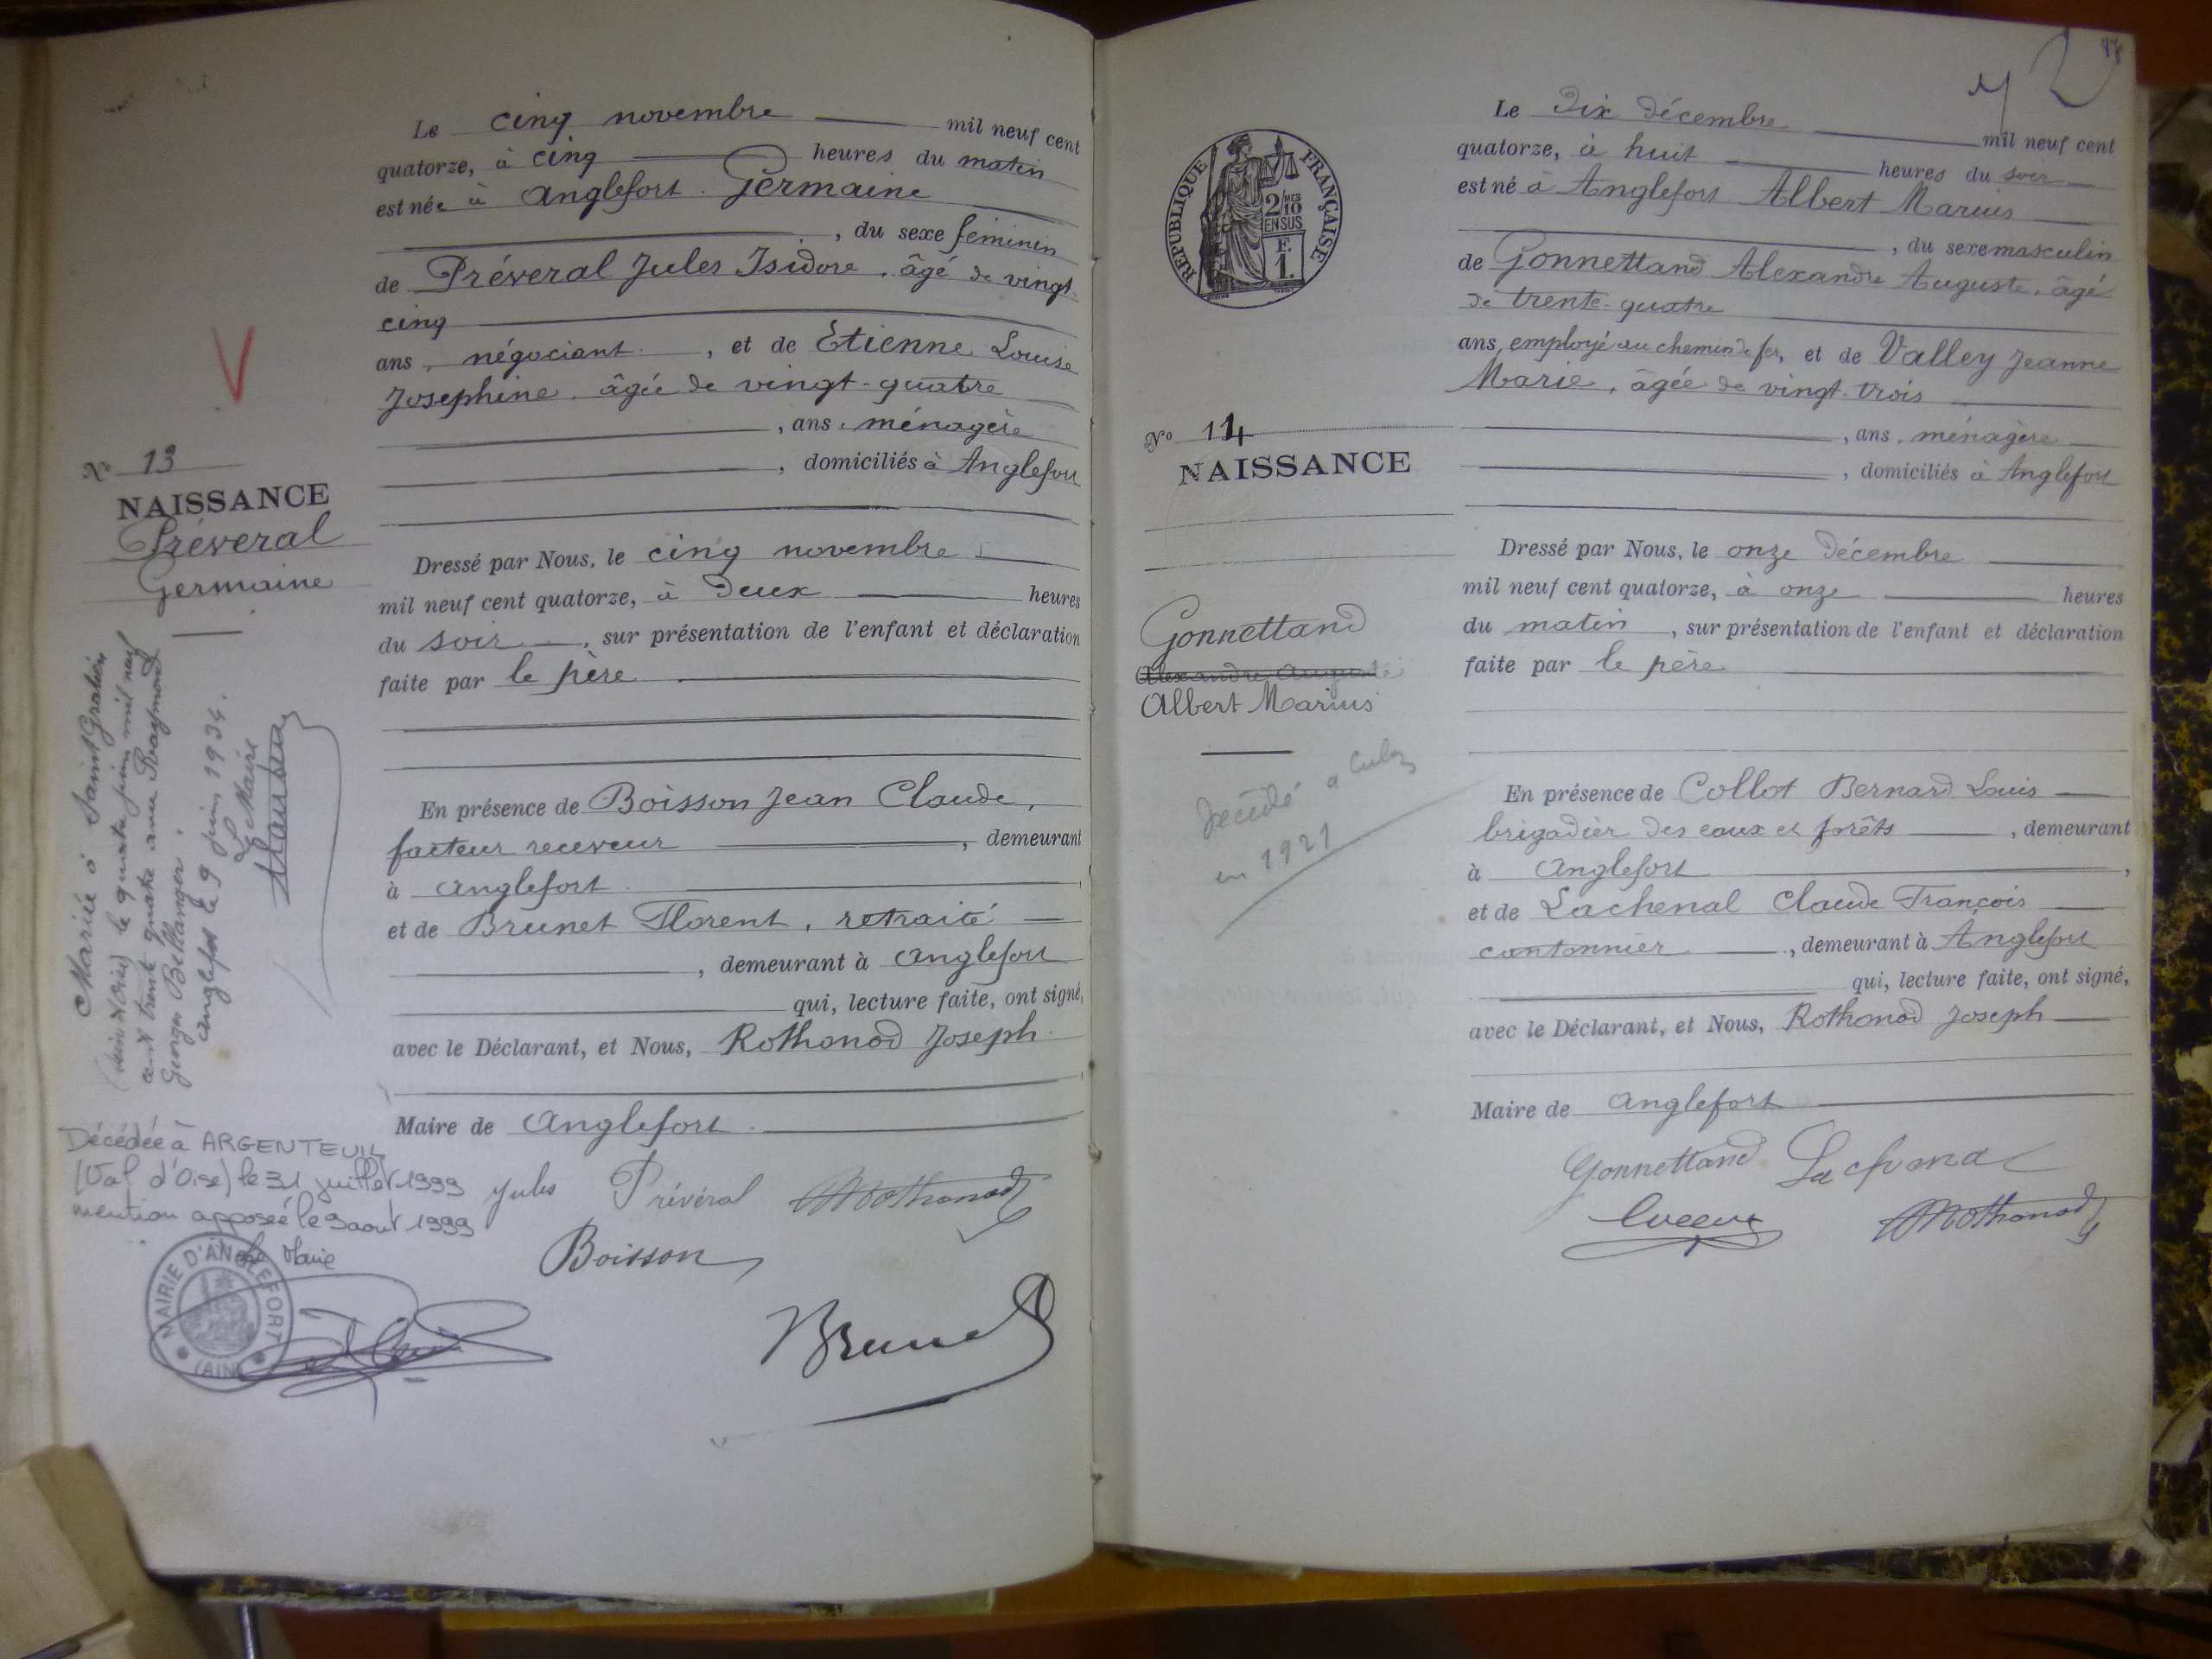 Le cinq novembre mil neuf cent
quatorze, à cinq heures du matin
est née à Anglefort Germaine
, du sexe féminin
de Préveral Jules Isidore, âgé de vingt-
cinq
ans, négociant, et de Etienne Louise
Josephine, âgée de vingt-quatre
, ans, ménagère
, domiciliés à Anglefort
Dressé par Nous, le cinq novembre
mil neuf cent quatorze, à deux heures
du soir, sur présentation de l'enfant et déclaration
faite par le père
En présence de Boisson Jean Claude,
facteur receveur, demeurant
à Anglefort
et de Brunet Florent, retraité
, demeurant à Anglefort
qui, lecture faite, ont signé,
avec le Déclarant, et Nous, Rothonod Joseph
Maire de Anglefort
Jules Prévéral Rothonod
Boisson
Brunet
No 13
NAISSANCE
Préveral
Germaine
Mariée à Saint Gratien
(Seine et Oise) le quatre juin mil neuf
cent trente quatre avec Raymond
Georges Bellanger.
Anglefort le 9 juin 1934.
Le Maire
Décédée à ARGENTEUIL
(Val d'Oise) le 31 juillet 1999
mention apposée le 9 aout 1999
Le Maire
MAIRIE D'ANGLEFORT
(AIN)
Le Dix Décembre mil neuf cent
quatorze, à huit heures du soir
est né à Anglefort Albert Marius
, du sexe masculin
de Gonnettand Alexandre Auguste, âgé
de trente-quatre
ans, employé au chemin de fer, et de Valley Jeanne
Marie, âgée de vingt-trois
, ans, ménagère
, domiciliés à Anglefort
Dressé par Nous, le onze Décembre
mil neuf cent quatorze, à onze heures
du matin, sur présentation de l'enfant et déclaration
faite par le père
En présence de Collot Bernard Louis
brigadier des eaux et forêts, demeurant
à Anglefort,
et de Lachenal Claude François
cantonnier, demeurant à Anglefort
qui, lecture faite, ont signé,
avec le Déclarant, et Nous, Rothonod Joseph
Maire de Anglefort
Gonnettand Lachenal
Rothonod
RÉPUBLIQUE FRANÇAISE
2/10
MES
EN SUS
F.
1.
No 14
NAISSANCE
Gonnettand
Alexandre Auguste
Albert Marius
Décédé à Culoz
en 1921